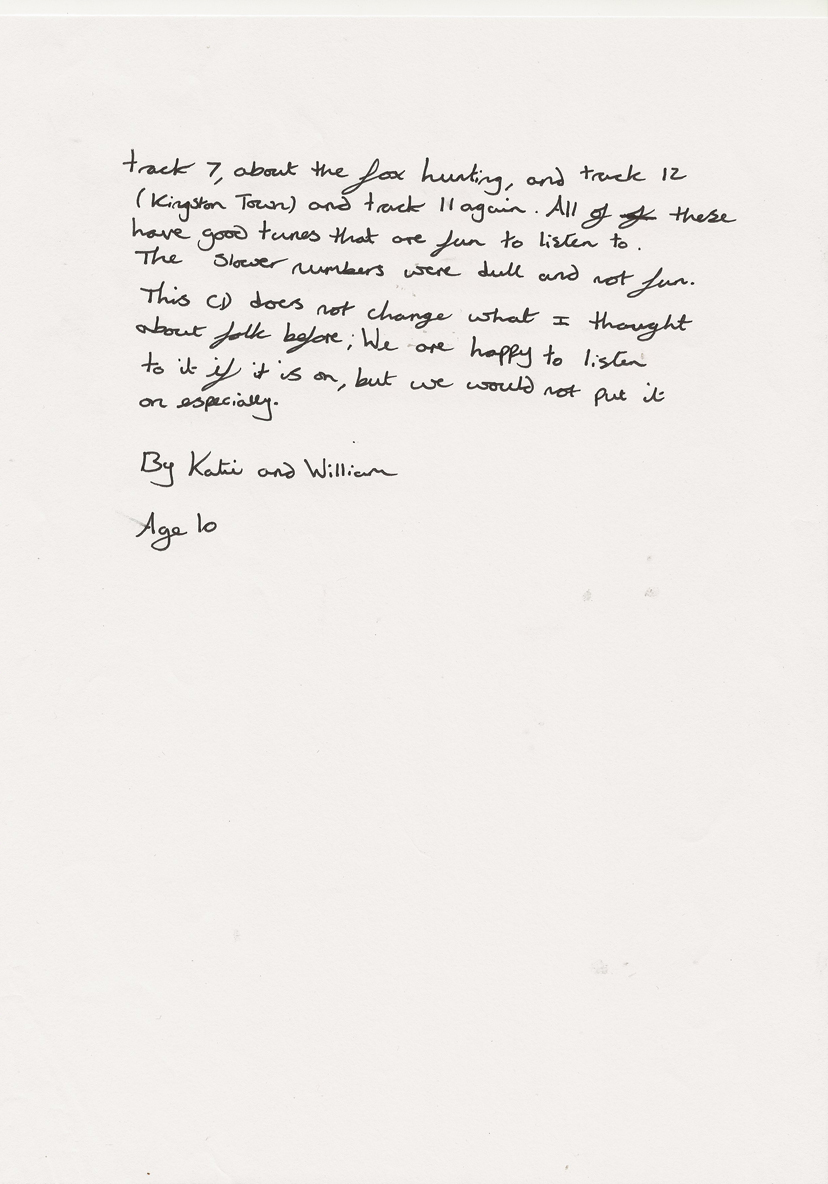 track 7, about the fox hunting, and track 12
(Kingston Town) and track 11 again. All of of these
have good tunes that are fun to listen to.
The slower numbers were dull and not fun.
This CD does not change what I thought
about folk before; We are happy to listen
to it if it is on, but we would not put it
on especially.
By Katie and William
Age 10